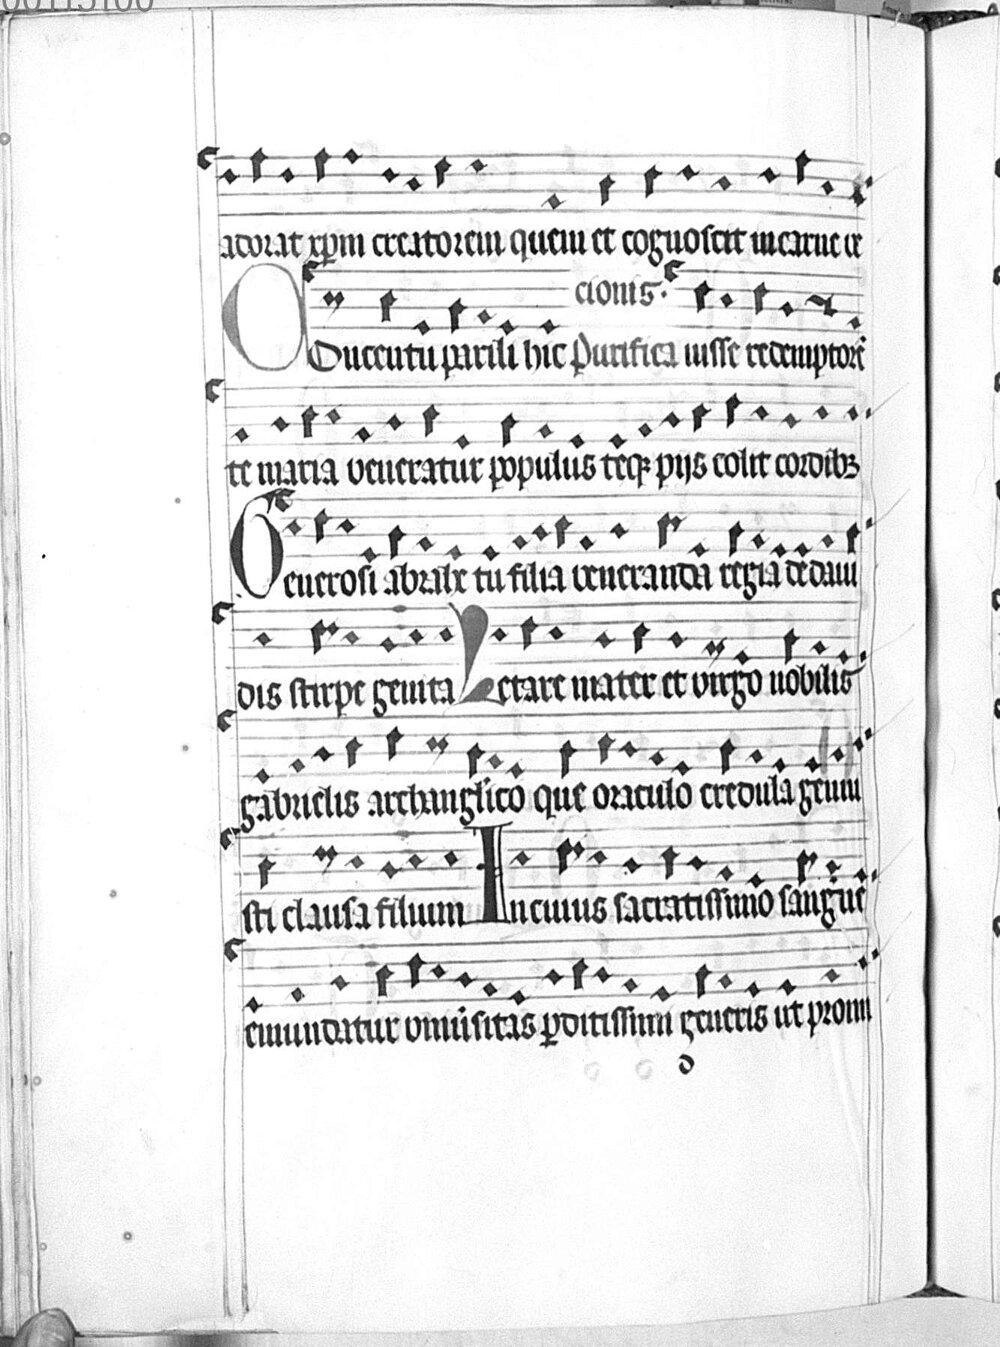 00113100
adorat xpm creatorem quem et cognoscit in carne re
cionis.
Concentu parili hic Purifica iusse redemptore
te maria veneratur populus teq; pijs colit cordibꝫ
Generosi abrahe tu filia veneranda regia de daui
dis stirpe genita Letare mater et virgo nobilis
gabrielis archanglico que oraculo credula genui
sti clausa filium In cuius sacratissimo sangue
emundatur vniūsitas ꝑditissimi generis ut promi